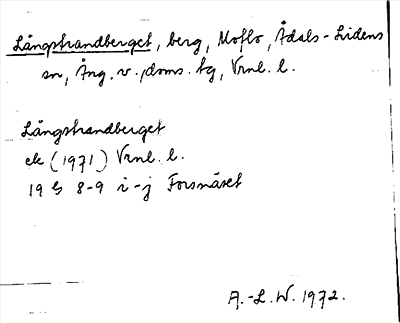 Långstrandberget, berg, Moflo, Ådals-Lidens
sn, Ång. v. doms. tg, Vrnl. l.
Långstrandberget
ek (1971) Vrnl. l.
19 G 8-9 i-j Forsnäset
A.-L. W. 1972.